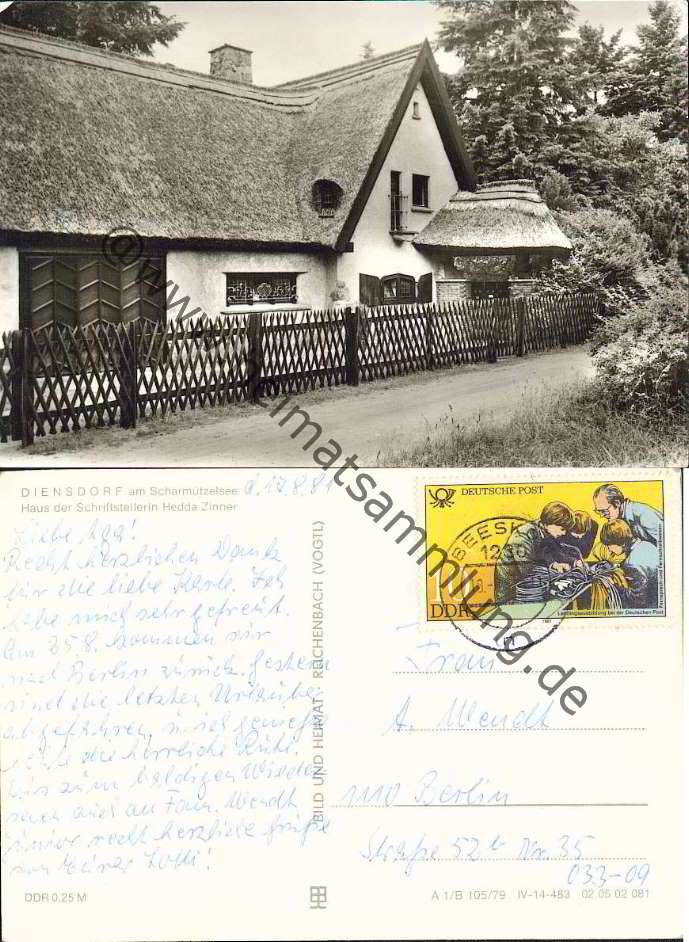 @ www.heimatsammlung.de
DIENSDORF am Scharmützelsee d. 17.8.81
Haus der Schriftstellerin Hedda Zinner
Liebe
Recht herzlichen Dank
für die liebe Karte. Ich
habe mich sehr gefreut.
Am 25 8. kommen wir
nach Berlin zurück. Gestern
sind die letzten Urlauber
abgefahren,
die herrliche Ruhe.
Bis zum baldigen Wieder
auch an Fam. Wendt
immer recht herzliche Grüße
von Lotti!
BILD UND HEIMAT REICHENBACH (VOGTL)
DEUTSCHE POST
10
DDR
Lehrlingsausbildung bei der Deutschen Post
Fernsprech- und Fernschreibwesen
1981
BEESK
Frau
A. Wendt
1110 Berlin
Straße 52b Nr. 35
033-09
DDR 0,25 M
A 1/B 105/79 IV-14-483 02 05 02 081